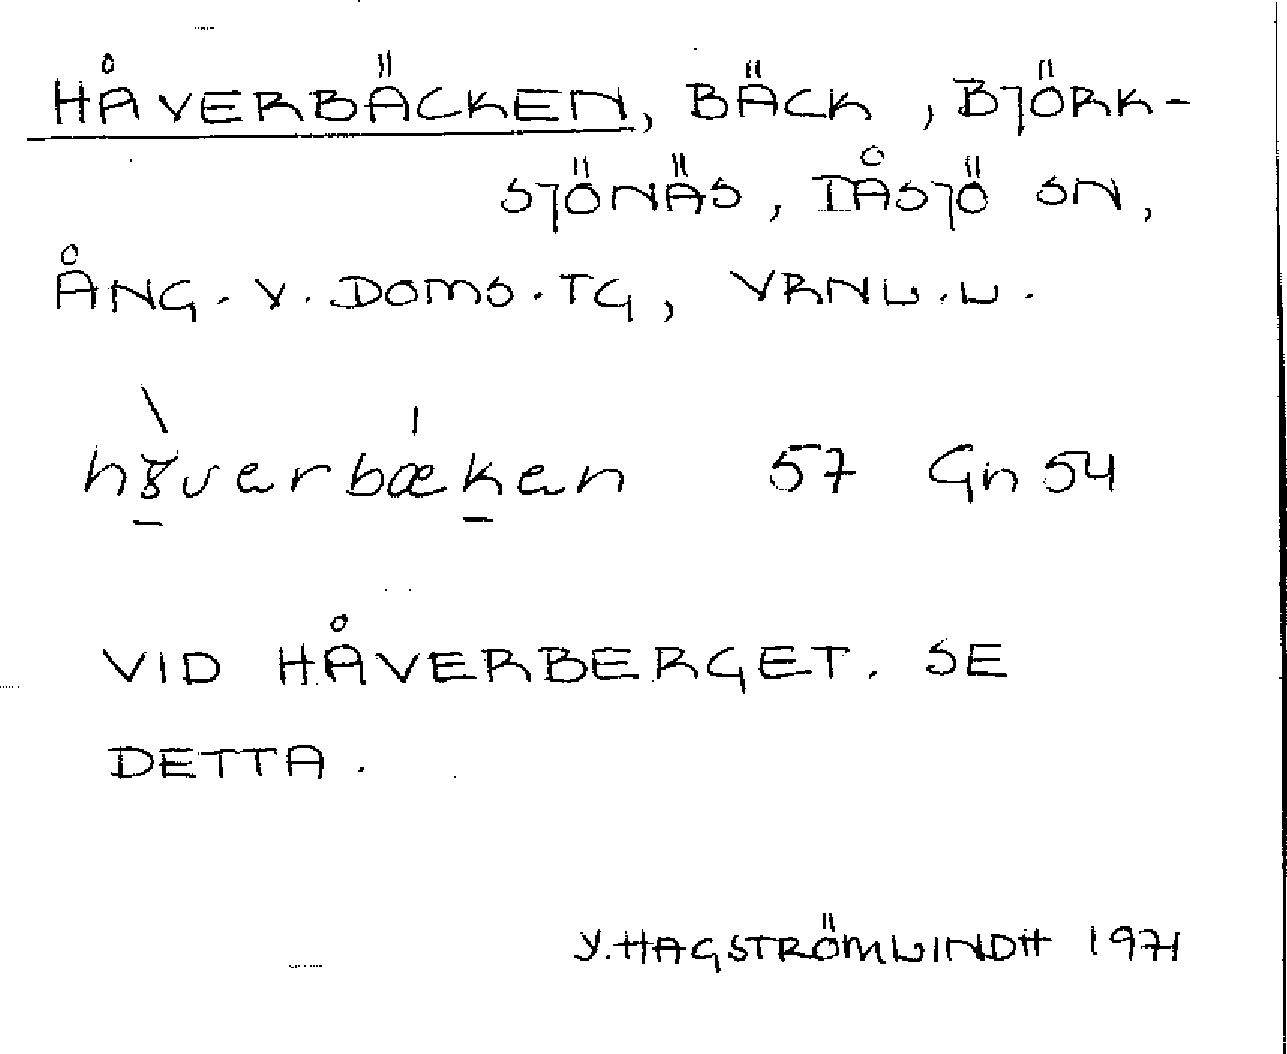 HÅVERBÄCKEN, BÄCK, BJÖRK-
SJÖNÄS, TÅSJÖ SN,
ÅNG. V. DOMS. TG, VRNL. L.
hȣverbæken 57 Gn 54
VID HÅVERBERGET. SE
DETTA.
Y. HAGSTRÖMLINDH 1971